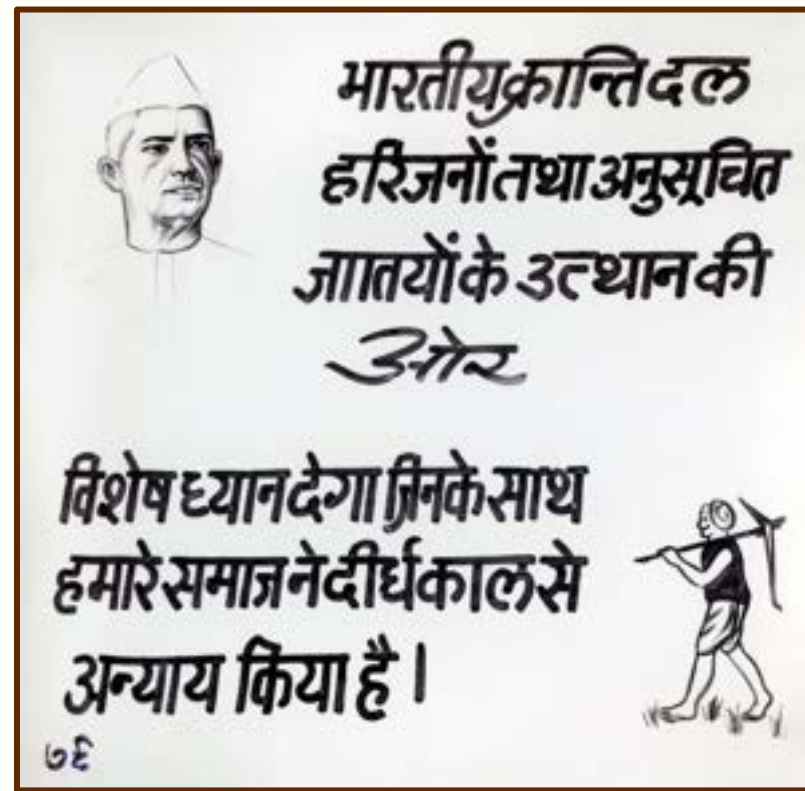 भारतीय क्रान्ति दल
हरिजनों तथा अनुसूचित
जाातयों के उत्थान की
ओर
विशेष ध्यान देगा जिनके साथ
हमारे समाज ने दीर्घकाल से
अन्याय किया है।
७६